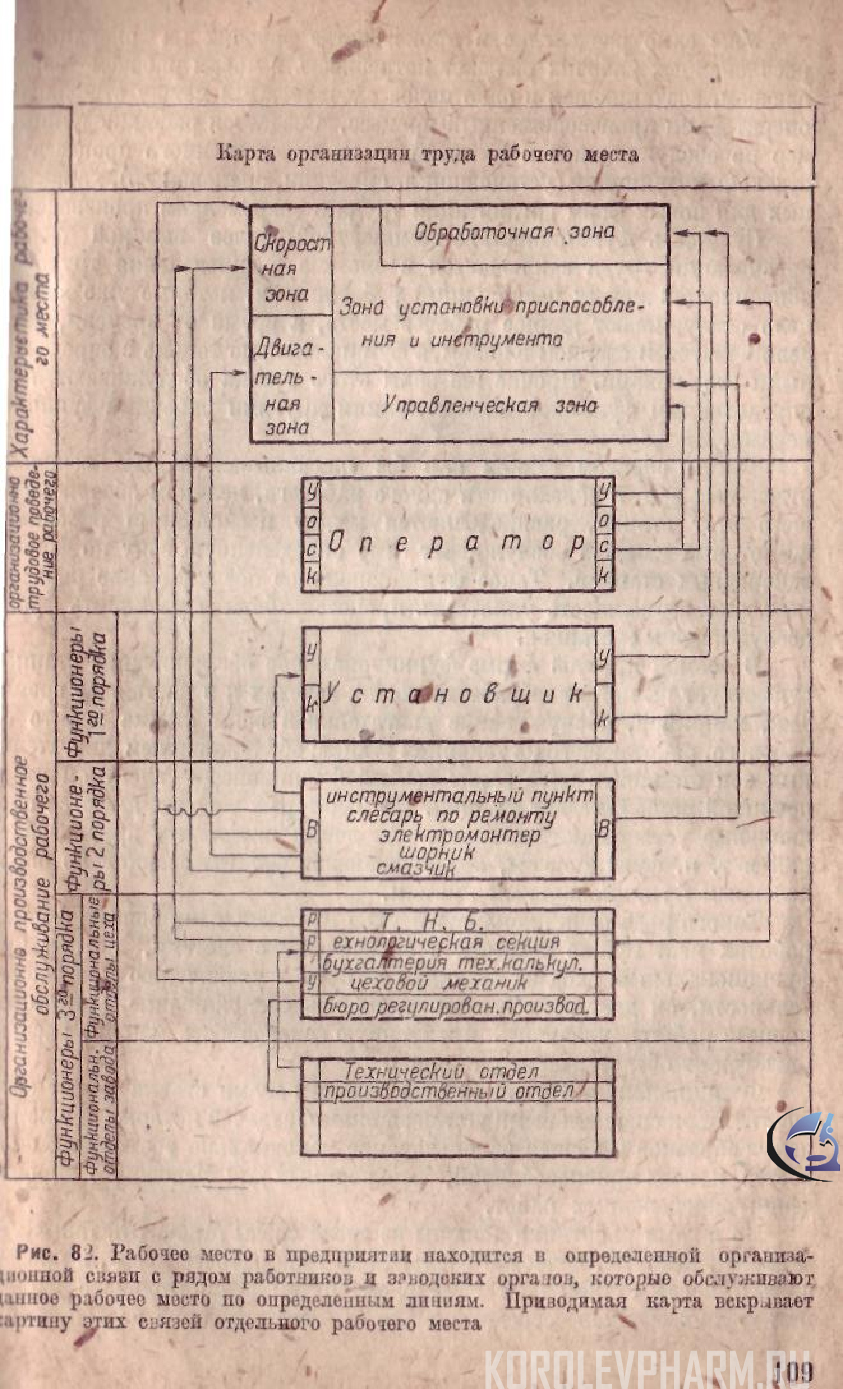 Карта организации труда рабочего места
Характеристика рабоче-
го места
Скорост
ная
зона
Обработочная зона
Зона установки приспособле-
ния и инструмента
Двига-
тель-
ная
зона
Управленческая зона
организационно
трудовое поведе-
ние рабочего
У
о
с
к
Оператор
У
о
с
к
Организационно производственное
обслуживание рабочего
Функционеры
1го порядка
У
к
Установщик
У
к
Функционе-
ры 2 порядка
В
инструментальный пункт
слесарь по ремонту
электромонтер
шорник
смазчик
В
Функционеры 3го порядка
Функциональные
отделы цеха
Р
Т. Н. Б.
Р
ехнологическая секция
бухгалтерия тех.калькул.
У
цеховой механик
бюро регулирован.производ.
Функциональн.
отделы завода
Технический отдел
производственный отдел
Рис. 82. Рабочее место в предприятии находится в определенной организа-
ционной связи с рядом работников и заводских органов, которые обслуживают
данное рабочее место по определенным линиям. Приводимая карта вскрывает
картину этих связей отдельного рабочего места
KOROLEVPHARM.RU
109